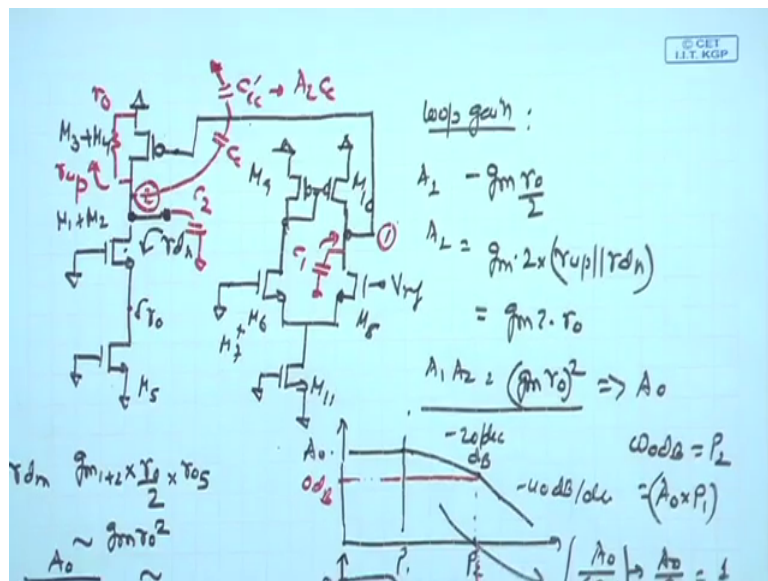 © CET
I.I.T. KGP
r0
C'c → A2 Cc
M3+M4
Cc
rup
2
C2
M1+M2
rdn
r0
M5
M9
M10
1
C1
Vref
M6
+
M7
M8
M11
loop gain :
A1 - gm r0/2
A2 = gm·2×(rup||rdn)
= gm2·r0
A1 A2 = (gm r0)² => A0
A0
-20/dec
dB
0dB
-40dB/dec
P1
P2
ω0dB = P2
=(A0×P1)
rdn gm1+2 × r0/2 × r05
~ gm r0²
A0
~
A0
→ A0
= 1